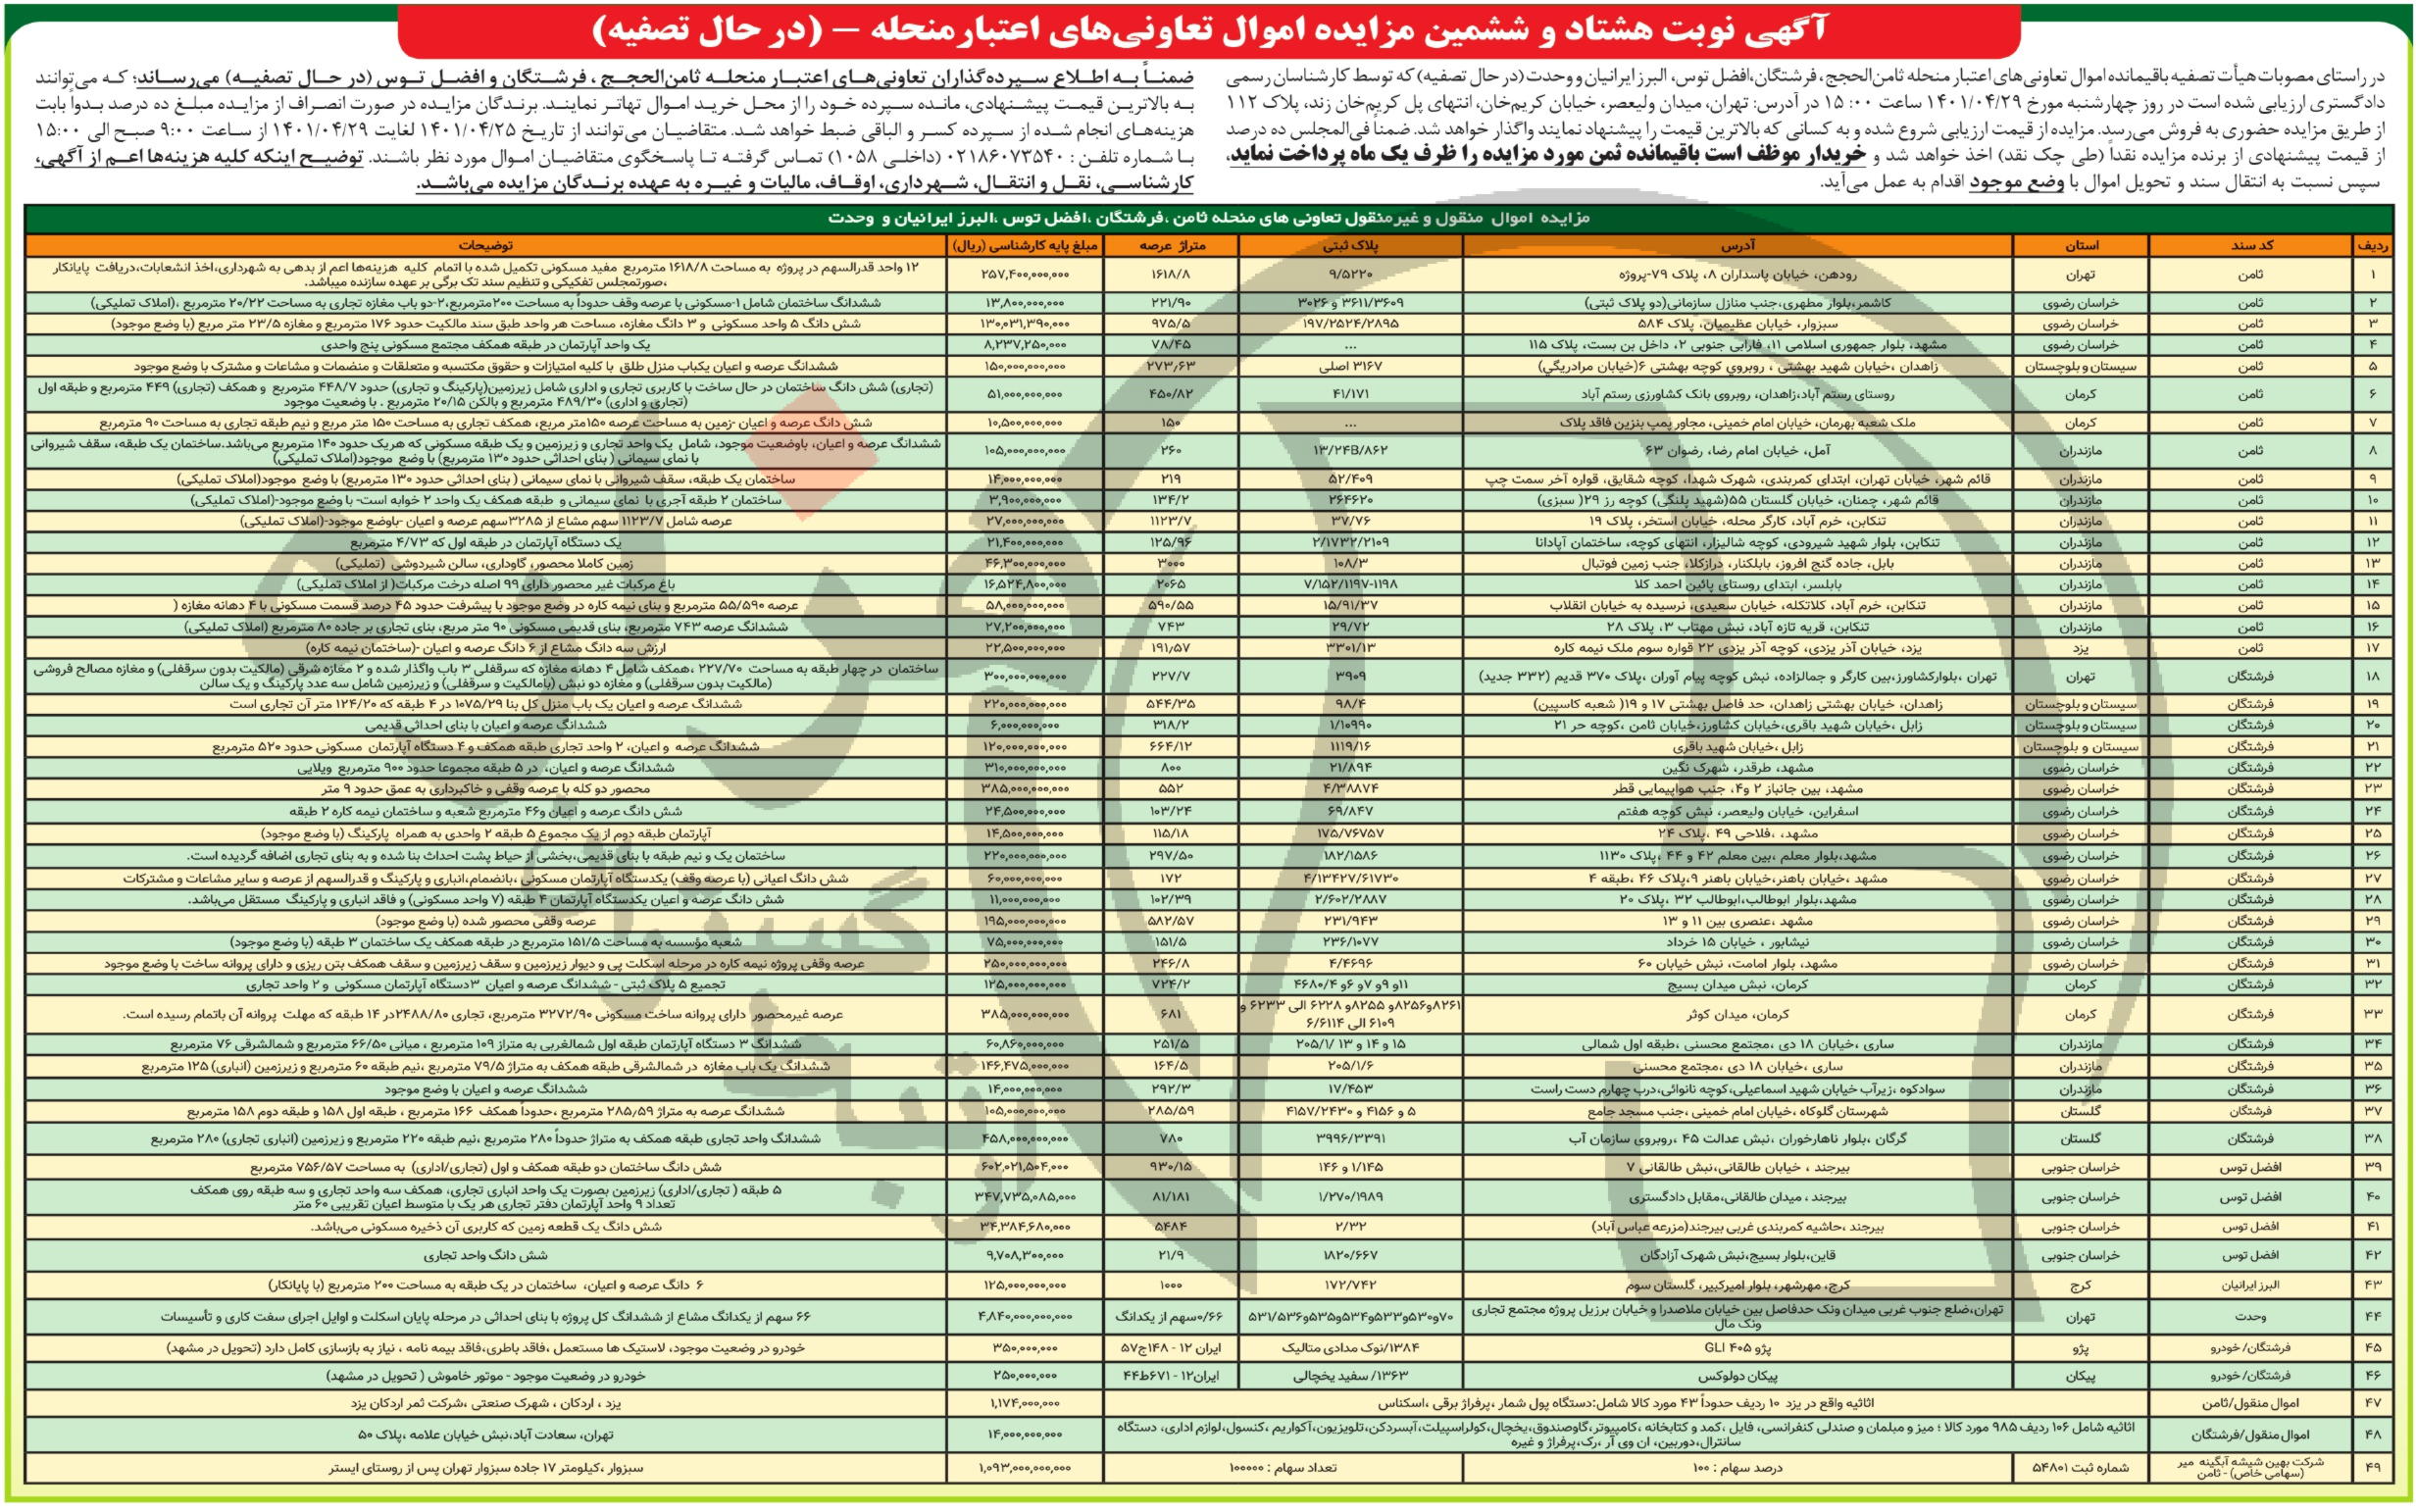 آگهی نوبت هشتاد و ششمین مزایده اموال تعاونی‌های اعتبار منحله – (در حال تصفیه)
در راستای مصوبات هیأت تصفیه باقیمانده اموال تعاونی‌های اعتبار منحله ثامن‌الحجج، فرشتگان، افضل توس، البرز ایرانیان و وحدت (در حال تصفیه) که توسط کارشناسان رسمی
دادگستری ارزیابی شده است در روز چهارشنبه مورخ ۱۴۰۱/۰۴/۲۹ ساعت ۱۵:۰۰ در آدرس: تهران، میدان ولیعصر، خیابان کریم‌خان، انتهای پل کریم‌خان زند، پلاک ۱۱۲
از طریق مزایده حضوری به فروش می‌رسد. مزایده از قیمت ارزیابی شروع شده و به کسانی که بالاترین قیمت را پیشنهاد نمایند واگذار خواهد شد. ضمناً فی‌المجلس ده درصد
از قیمت پیشنهادی از برنده مزایده نقداً (طی چک نقد) اخذ خواهد شد و خریدار موظف است باقیمانده ثمن مورد مزایده را ظرف یک ماه پرداخت نماید،
سپس نسبت به انتقال سند و تحویل اموال با وضع موجود اقدام به عمل می‌آید.
ضمناً به اطلاع سپرده‌گذاران تعاونی‌های اعتبار منحله ثامن‌الحجج، فرشتگان و افضل توس (در حال تصفیه) می‌رساند؛ که می‌توانند
به بالاترین قیمت پیشنهادی، مانده سپرده خود را از محل خرید اموال تهاتر نمایند. برندگان مزایده در صورت انصراف از مزایده مبلغ ده درصد بدواً بابت
هزینه‌های انجام شده از سپرده کسر و الباقی ضبط خواهد شد. متقاضیان می‌توانند از تاریخ ۱۴۰۱/۰۴/۲۵ لغایت ۱۴۰۱/۰۴/۲۹ از ساعت ۹:۰۰ صبح الی ۱۵:۰۰
با شماره تلفن: ۰۲۱۸۶۰۷۳۵۴۰ (داخلی ۱۰۵۸) تماس گرفته تا پاسخگوی متقاضیان اموال مورد نظر باشند. توضیح اینکه کلیه هزینه‌ها اعم از آگهی،
کارشناسی، نقل و انتقال، شهرداری، اوقاف، مالیات و غیره به عهده برندگان مزایده می‌باشد.
مزایده اموال منقول و غیرمنقول تعاونی های منحله ثامن ،فرشتگان ،افضل توس ،البرز ایرانیان و وحدت
ردیف کد سند استان آدرس پلاک ثبتی متراژ عرصه مبلغ پایه کارشناسی (ریال) توضیحات
۱ ثامن تهران رودهن، خیابان پاسداران ۸، پلاک ۷۹-پروژه ۹/۵۲۲۰ ۱۶۱۸/۸ ۲۵۷,۴۰۰,۰۰۰,۰۰۰ ۱۲ واحد قدرالسهم در پروژه به مساحت ۱۶۱۸/۸ مترمربع مفید مسکونی تکمیل شده با اتمام کلیه هزینه‌ها اعم از بدهی به شهرداری،اخذ انشعابات،دریافت پایانکار
،صورتمجلس تفکیکی و تنظیم سند تک برگی بر عهده سازنده میباشد.
۲ ثامن خراسان رضوی کاشمر،بلوار مطهری،جنب منازل سازمانی(دو پلاک ثبتی) ۳۶۱۱/۳۶۰۹ و ۳۰۲۶ ۲۲۱/۹۰ ۱۳,۸۰۰,۰۰۰,۰۰۰ ششدانگ ساختمان شامل ۱-مسکونی با عرصه وقف حدوداً به مساحت ۲۰۰مترمربع،۲-دو باب مغازه تجاری به مساحت ۲۰/۲۲ مترمربع ،(املاک تملیکی)
۳ ثامن خراسان رضوی سبزوار، خیابان عظیمیان، پلاک ۵۸۴ ۱۹۷/۲۵۲۴/۲۸۹۵ ۹۷۵/۵ ۱۳۰,۰۳۱,۳۹۰,۰۰۰ شش دانگ ۵ واحد مسکونی و ۳ دانگ مغازه، مساحت هر واحد طبق سند مالکیت حدود ۱۷۶ مترمربع و مغازه ۲۳/۵ متر مربع (با وضع موجود)
۴ ثامن خراسان رضوی مشهد، بلوار جمهوری اسلامی ۱۱، فارابی جنوبی ۲، داخل بن بست، پلاک ۱۱۵ ... ۷۸/۴۵ ۸,۲۳۷,۲۵۰,۰۰۰ یک واحد آپارتمان در طبقه همکف مجتمع مسکونی پنج واحدی
۵ ثامن سیستان و بلوچستان زاهدان ،خیابان شهید بهشتی ، روبروي کوچه بهشتی ۶(خیابان مرادریگي) ۳۱۶۷ اصلی ۲۷۳,۶۳ ۱۵۰,۰۰۰,۰۰۰,۰۰۰ ششدانگ عرصه و اعیان یکباب منزل طلق با کلیه امتیازات و حقوق مکتسبه و متعلقات و منضمات و مشاعات و مشترک با وضع موجود
۶ ثامن کرمان روستای رستم آباد،زاهدان، روبروی بانک کشاورزی رستم آباد ۴۱/۱۷۱ ۴۵۰/۸۲ ۵۱,۰۰۰,۰۰۰,۰۰۰ (تجاری) شش دانگ ساختمان در حال ساخت با کاربری تجاری و اداری شامل زیرزمین(پارکینگ و تجاری) حدود ۴۴۸/۷ مترمربع و همکف (تجاری) ۴۴۹ مترمربع و طبقه اول
(تجاری و اداری) ۴۸۹/۳۰ مترمربع و بالکن ۲۰/۱۵ مترمربع . با وضعیت موجود
۷ ثامن کرمان ملک شعبه بهرمان، خیابان امام خمینی، مجاور پمپ بنزین فاقد پلاک ... ۱۵۰ ۱۰,۵۰۰,۰۰۰,۰۰۰ شش دانگ عرصه و اعیان -زمین به مساحت عرصه ۱۵۰متر مربع، همکف تجاری به مساحت ۱۵۰ متر مربع و نیم طبقه تجاری به مساحت ۹۰ مترمربع
۸ ثامن مازندران آمل، خیابان امام رضا، رضوان ۶۳ ۱۳/۲۴B/۸۶۲ ۲۶۰ ۱۰۵,۰۰۰,۰۰۰,۰۰۰ ششدانگ عرصه و اعیان، باوضعیت موجود، شامل یک واحد تجاری و زیرزمین و یک طبقه مسکونی که هریک حدود ۱۴۰ مترمربع می‌باشد.ساختمان یک طبقه، سقف شیروانی
با نمای سیمانی ( بنای احداثی حدود ۱۳۰ مترمربع) با وضع موجود(املاک تملیکی)
۹ ثامن مازندران قائم شهر، خیابان تهران، ابتدای کمربندی، شهرک شهدا، کوچه شقایق، قواره آخر سمت چپ ۵۲/۴۰۹ ۲۱۹ ۱۴,۰۰۰,۰۰۰,۰۰۰ ساختمان یک طبقه، سقف شیروانی با نمای سیمانی ( بنای احداثی حدود ۱۳۰ مترمربع) با وضع موجود(املاک تملیکی)
۱۰ ثامن مازندران قائم شهر، چمنان، خیابان گلستان ۵۵(شهید پلنگی) کوچه رز ۲۹( سبزی) ۲۶۴۶۲۰ ۱۳۴/۲ ۳,۹۰۰,۰۰۰,۰۰۰ ساختمان ۲ طبقه آجری با نمای سیمانی و طبقه همکف یک واحد ۲ خوابه است- با وضع موجود-(املاک تملیکی)
۱۱ ثامن مازندران تنکابن، خرم آباد، کارگر محله، خیابان استخر، پلاک ۱۹ ۳۷/۷۶ ۱۱۲۳/۷ ۲۷,۰۰۰,۰۰۰,۰۰۰ عرصه شامل ۱۱۲۳/۷ سهم مشاع از ۳۲۸۵سهم عرصه و اعیان -باوضع موجود-(املاک تملیکی)
۱۲ ثامن مازندران تنکابن، بلوار شهید شیرودی، کوچه شالیزار، انتهای کوچه، ساختمان آپادانا ۲/۱۷۳۲/۲۱۰۹ ۱۲۵/۹۶ ۲۱,۴۰۰,۰۰۰,۰۰۰ یک دستگاه آپارتمان در طبقه اول که ۴/۷۳ مترمربع
۱۳ ثامن مازندران بابل، جاده گنج افروز، بابلکنار، درازکلا، جنب زمین فوتبال ۱۰۸/۳ ۳۰۰۰ ۴۶,۳۰۰,۰۰۰,۰۰۰ زمین کاملا محصور، گاوداری، سالن شیردوشی (تملیکی)
۱۴ ثامن مازندران بابلسر، ابتدای روستای پائین احمد کلا ۷/۱۵۲/۱۱۹۷-۱۱۹۸ ۲۰۶۵ ۱۶,۵۲۴,۸۰۰,۰۰۰ باغ مرکبات غیر محصور دارای ۹۹ اصله درخت مرکبات( از املاک تملیکی)
۱۵ ثامن مازندران تنکابن، خرم آباد، کلاتکله، خیابان سعیدی، نرسیده به خیابان انقلاب ۱۵/۹۱/۳۷ ۵۹۰/۵۵ ۵۸,۰۰۰,۰۰۰,۰۰۰ عرصه ۵۵/۵۹۰ مترمربع و بنای نیمه کاره در وضع موجود با پیشرفت حدود ۴۵ درصد قسمت مسکونی با ۴ دهانه مغازه (
۱۶ ثامن مازندران تنکابن، قریه تازه آباد، نبش مهتاب ۳، پلاک ۲۸ ۲۹/۷۲ ۷۴۳ ۲۷,۲۰۰,۰۰۰,۰۰۰ ششدانگ عرصه ۷۴۳ مترمربع، بنای قدیمی مسکونی ۹۰ متر مربع، بنای تجاری بر جاده ۸۰ مترمربع (املاک تملیکی)
۱۷ ثامن یزد یزد، خیابان آذر یزدی، کوچه آذر یزدی ۲۲ قواره سوم ملک نیمه کاره ۳۳۰۱/۱۳ ۱۹۱,۵۷ ۲۲,۵۰۰,۰۰۰,۰۰۰ ارزش سه دانگ مشاع از ۶ دانگ عرصه و اعیان -(ساختمان نیمه کاره)
۱۸ فرشتگان تهران تهران ،بلوارکشاورز،بین کارگر و جمالزاده، نبش کوچه پیام آوران ،پلاک ۳۷۰ قدیم (۳۳۲ جدید) ۳۹۰۹ ۲۲۷/۷ ۳۰۰,۰۰۰,۰۰۰,۰۰۰ ساختمان در چهار طبقه به مساحت ۲۲۷/۷۰ ،همکف شامل ۴ دهانه مغازه که سرقفلی ۳ باب واگذار شده و ۲ مغازه شرقی (مالکیت بدون سرقفلی) و مغازه مصالح فروشی
(مالکیت بدون سرقفلی) و مغازه دو نبش (بامالکیت و سرقفلی) و زیرزمین شامل سه عدد پارکینگ و یک سالن
۱۹ فرشتگان سیستان و بلوچستان زاهدان، خیابان بهشتی زاهدان، حد فاصل بهشتی ۱۷ و ۱۹( شعبه کاسپین) ۹۸/۴ ۵۴۴/۳۵ ۲۲۰,۰۰۰,۰۰۰,۰۰۰ ششدانگ عرصه و اعیان یک باب منزل کل بنا ۱۰۷۵/۲۹ در ۴ طبقه که ۱۲۴/۲۰ متر آن تجاری است
۲۰ فرشتگان سیستان و بلوچستان زابل ،خیابان شهید باقری،خیابان کشاورز،خیابان ثامن ،کوچه حر ۲۱ ۱/۱۰۹۹۰ ۳۱۸/۲ ۶,۰۰۰,۰۰۰,۰۰۰ ششدانگ عرصه و اعیان با بنای احداثی قدیمی
۲۱ فرشتگان سیستان و بلوچستان زابل ،خیابان شهید باقری ۱۱۱۹/۱۶ ۶۶۴/۱۲ ۱۲۰,۰۰۰,۰۰۰,۰۰۰ ششدانگ عرصه و اعیان، ۲ واحد تجاری طبقه همکف و ۴ دستگاه آپارتمان مسکونی حدود ۵۲۰ مترمربع
۲۲ فرشتگان خراسان رضوی مشهد، طرقدر، شهرک نگین ۲۱/۸۹۴ ۸۰۰ ۳۱۰,۰۰۰,۰۰۰,۰۰۰ ششدانگ عرصه و اعیان، در ۵ طبقه مجموعا حدود ۹۰۰ مترمربع ویلایی
۲۳ فرشتگان خراسان رضوی مشهد، بین جانباز ۲ و۴، جنب هواپیمایی قطر ۴/۳۸۸۷۴ ۵۵۲ ۳۸۵,۰۰۰,۰۰۰,۰۰۰ محصور دو کله با عرصه وقفی و خاکبرداری به عمق حدود ۹ متر
۲۴ فرشتگان خراسان رضوی اسفراین، خیابان ولیعصر، نبش کوچه هفتم ۶۹/۸۴۷ ۱۰۳/۲۴ ۲۴,۵۰۰,۰۰۰,۰۰۰ شش دانگ عرصه و اعیان و۴۶ مترمربع شعبه و ساختمان نیمه کاره ۲ طبقه
۲۵ فرشتگان خراسان رضوی مشهد، ،فلاحی ۴۹ ،پلاک ۲۴ ۱۷۵/۷۶۷۵۷ ۱۱۵/۱۸ ۱۴,۵۰۰,۰۰۰,۰۰۰ آپارتمان طبقه دوم از یک مجموع ۵ طبقه ۲ واحدی به همراه پارکینگ (با وضع موجود)
۲۶ فرشتگان خراسان رضوی مشهد،بلوار معلم ،بین معلم ۴۲ و ۴۴ ،پلاک ۱۱۳۰ ۱۸۲/۱۵۸۶ ۲۹۷/۵۰ ۲۲۰,۰۰۰,۰۰۰,۰۰۰ ساختمان یک و نیم طبقه با بنای قدیمی،بخشی از حیاط پشت احداث بنا شده و به بنای تجاری اضافه گردیده است.
۲۷ فرشتگان خراسان رضوی مشهد ،خیابان باهنر،خیابان باهنر ۹،پلاک ۴۶ ،طبقه ۴ ۴/۱۳۴۲۷/۶۱۷۳۰ ۱۷۲ ۶۰,۰۰۰,۰۰۰,۰۰۰ شش دانگ اعیانی (با عرصه وقف) یکدستگاه آپارتمان مسکونی ،بانضمام،انباری و پارکینگ و قدرالسهم از عرصه و سایر مشاعات و مشترکات
۲۸ فرشتگان خراسان رضوی مشهد،بلوار ابوطالب،ابوطالب ۳۲ ،پلاک ۲۰ ۲/۶۰۲/۲۸۸۷ ۱۰۲/۳۹ ۱۱,۰۰۰,۰۰۰,۰۰۰ شش دانگ عرصه و اعیان یکدستگاه آپارتمان ۴ طبقه (۷ واحد مسکونی) و فاقد انباری و پارکینگ مستقل می‌باشد.
۲۹ فرشتگان خراسان رضوی مشهد ،عنصری بین ۱۱ و ۱۳ ۲۳۱/۹۴۳ ۵۸۲/۵۷ ۱۹۵,۰۰۰,۰۰۰,۰۰۰ عرصه وقفی محصور شده (با وضع موجود)
۳۰ فرشتگان خراسان رضوی نیشابور ، خیابان ۱۵ خرداد ۲۳۶/۱۰۷۷ ۱۵۱/۵ ۷۵,۰۰۰,۰۰۰,۰۰۰ شعبه مؤسسه به مساحت ۱۵۱/۵ مترمربع در طبقه همکف یک ساختمان ۳ طبقه (با وضع موجود)
۳۱ فرشتگان خراسان رضوی مشهد، بلوار امامت، نبش خیابان ۶۰ ۴/۴۶۹۶ ۲۴۶/۸ ۲۵۰,۰۰۰,۰۰۰,۰۰۰ عرصه وقفی پروژه نیمه کاره در مرحله اسکلت پی و دیوار زیرزمین و سقف زیرزمین و سقف همکف بتن ریزی و دارای پروانه ساخت با وضع موجود
۳۲ فرشتگان کرمان کرمان، نبش میدان بسیج ۱۱و ۹و ۷و ۶و ۴۶۸۰/۴ ۷۲۴/۲ ۱۲۵,۰۰۰,۰۰۰,۰۰۰ تجمیع ۵ پلاک ثبتی - ششدانگ عرصه و اعیان ۳دستگاه آپارتمان مسکونی و ۲ واحد تجاری
۳۳ فرشتگان کرمان کرمان، میدان کوثر ۸۲۶۱و۸۲۵۶و ۸۲۵۵و ۶۲۲۸ الی ۶۲۳۳ و
۶۱۰۹ الی ۶/۶۱۱۴ ۶۸۱ ۳۸۵,۰۰۰,۰۰۰,۰۰۰ عرصه غیرمحصور دارای پروانه ساخت مسکونی ۳۲۷۲/۹۰ مترمربع، تجاری ۲۴۸۸/۸۰در ۱۴ طبقه که مهلت پروانه آن باتمام رسیده است.
۳۴ فرشتگان مازندران ساری ،خیابان ۱۸ دی ،مجتمع محسنی ،طبقه اول شمالی ۱۵ و ۱۴ و ۱۳ /۲۰۵/۱ ۲۵۱/۵ ۶۰,۸۶۰,۰۰۰,۰۰۰ ششدانگ ۳ دستگاه آپارتمان طبقه اول شمالغربی به متراژ ۱۰۹ مترمربع ، میانی ۶۶/۵۰ مترمربع و شمالشرقی ۷۶ مترمربع
۳۵ فرشتگان مازندران ساری ،خیابان ۱۸ دی ،مجتمع محسنی ۲۰۵/۱/۶ ۱۶۴/۵ ۱۴۶,۴۷۵,۰۰۰,۰۰۰ ششدانگ یک باب مغازه در شمالشرقی طبقه همکف به متراژ ۷۹/۵ مترمربع ،نیم طبقه ۶۰ مترمربع و زیرزمین (انباری) ۱۲۵ مترمربع
۳۶ فرشتگان مازندران سوادکوه ،زیرآب خیابان شهید اسماعیلی،کوچه نانوائی،درب چهارم دست راست ۱۷/۴۵۳ ۲۹۲/۳ ۱۴,۰۰۰,۰۰۰,۰۰۰ ششدانگ عرصه و اعیان با وضع موجود
۳۷ فرشتگان گلستان شهرستان گلوکاه ،خیابان امام خمینی ،جنب مسجد جامع ۵ و ۴۱۵۶ و ۴۱۵۷/۲۴۳۰ ۲۸۵/۵۹ ۱۰۵,۰۰۰,۰۰۰,۰۰۰ ششدانگ عرصه به متراژ ۲۸۵/۵۹ مترمربع ،حدوداً همکف ۱۶۶ مترمربع ، طبقه اول ۱۵۸ و طبقه دوم ۱۵۸ مترمربع
۳۸ فرشتگان گلستان گرگان ،بلوار ناهارخوران ،نبش عدالت ۴۵ ،روبروی سازمان آب ۳۹۹۶/۳۳۹۱ ۷۸۰ ۴۵۸,۰۰۰,۰۰۰,۰۰۰ ششدانگ واحد تجاری طبقه همکف به متراژ حدوداً ۲۸۰ مترمربع ،نیم طبقه ۲۲۰ مترمربع و زیرزمین (انباری تجاری) ۲۸۰ مترمربع
۳۹ افضل توس خراسان جنوبی بیرجند ، خیابان طالقانی،نبش طالقانی ۷ ۱/۱۴۵ و ۱۴۶ ۹۳۰/۱۵ ۶۰۲,۰۲۱,۵۰۴,۰۰۰ شش دانگ ساختمان دو طبقه همکف و اول (تجاری/اداری) به مساحت ۷۵۶/۵۷ مترمربع
۴۰ افضل توس خراسان جنوبی بیرجند ، میدان طالقانی،مقابل دادگستری ۱/۲۷۰/۱۹۸۹ ۸۱/۱۸۱ ۳۴۷,۷۳۵,۰۸۵,۰۰۰ ۵ طبقه ( تجاری/اداری) زیرزمین بصورت یک واحد انباری تجاری، همکف سه واحد تجاری و سه طبقه روی همکف
تعداد ۹ واحد آپارتمان دفتر تجاری هر یک با متوسط اعیان تقریبی ۶۰ متر
۴۱ افضل توس خراسان جنوبی بیرجند ،حاشیه کمربندی غربی بیرجند(مزرعه عباس آباد) ۲/۳۲ ۵۴۸۴ ۳۴,۳۸۴,۶۸۰,۰۰۰ شش دانگ یک قطعه زمین که کاربری آن ذخیره مسکونی می‌باشد.
۴۲ افضل توس خراسان جنوبی قاین،بلوار بسیج،نبش شهرک آزادگان ۱۸۲۰/۶۶۷ ۲۱/۹ ۹,۷۰۸,۳۰۰,۰۰۰ شش دانگ واحد تجاری
۴۳ البرز ایرانیان کرج کرج، مهرشهر، بلوار امیرکبیر، گلستان سوم ۱۷۲/۷۴۲ ۱۰۰۰ ۱۲۵,۰۰۰,۰۰۰,۰۰۰ ۶ دانگ عرصه و اعیان، ساختمان در یک طبقه به مساحت ۲۰۰ مترمربع (با پایانکار)
۴۴ وحدت تهران تهران،ضلع جنوب غربی میدان ونک حدفاصل بین خیابان ملاصدرا و خیابان برزیل پروژه مجتمع تجاری
ونک مال ۷۰و۵۳۰و۵۳۳و۵۳۴و۵۳۵و۵۳۱/۵۳۶ ۰/۶۶سهم از یکدانگ ۴,۸۴۰,۰۰۰,۰۰۰,۰۰۰ ۶۶ سهم از یکدانگ مشاع از ششدانگ کل پروژه با بنای احداثی در مرحله پایان اسکلت و اوایل اجرای سفت کاری و تأسیسات
۴۵ فرشتگان/ خودرو پژو پژو ۴۰۵ GLI ۱۳۸۴/نوک مدادی متالیک ایران ۱۲ - ۱۴۸ج۵۷ ۳۵۰,۰۰۰,۰۰۰ خودرو در وضعیت موجود، لاستیک ها مستعمل ،فاقد باطری،فاقد بیمه نامه ، نیاز به بازسازی کامل دارد (تحویل در مشهد)
۴۶ فرشتگان/ خودرو پیکان پیکان دولوکس ۱۳۶۳/ سفید یخچالی ایران۱۲ - ۶۷۱ط۴۴ ۲۵۰,۰۰۰,۰۰۰ خودرو در وضعیت موجود - موتور خاموش ( تحویل در مشهد)
۴۷ اموال منقول/ثامن اثاثیه واقع در یزد ۱۰ ردیف حدوداً ۴۳ مورد کالا شامل:دستگاه پول شمار ،پرفراژ برقی ،اسکناس ۱,۱۷۴,۰۰۰,۰۰۰ یزد ، اردکان ، شهرک صنعتی ،شرکت ثمر اردکان یزد
۴۸ اموال منقول/فرشتگان اثاثیه شامل ۱۰۶ ردیف ۹۸۵ مورد کالا ؛ میز و مبلمان و صندلی کنفرانسی، فایل ،کمد و کتابخانه ،کامپیوتر،گاوصندوق،یخچال،کولراسپیلت،آبسردکن،تلویزیون،آکواریم ،کنسول،لوازم اداری، دستگاه
سانترال،دوربین، ان وی آر ،رک،پرفراژ و غیره ۱۴,۰۰۰,۰۰۰,۰۰۰ تهران، سعادت آباد،نبش خیابان علامه ،پلاک ۵۰
۴۹ شرکت بهین شیشه آبگینه میر
(سهامی خاص) - ثامن شماره ثبت ۵۴۸۰۱ درصد سهام : ۱۰۰ تعداد سهام : ۱۰۰۰۰۰ ۱,۰۹۳,۰۰۰,۰۰۰,۰۰۰ سبزوار ،کیلومتر ۱۷ جاده سبزوار تهران پس از روستای ایستر